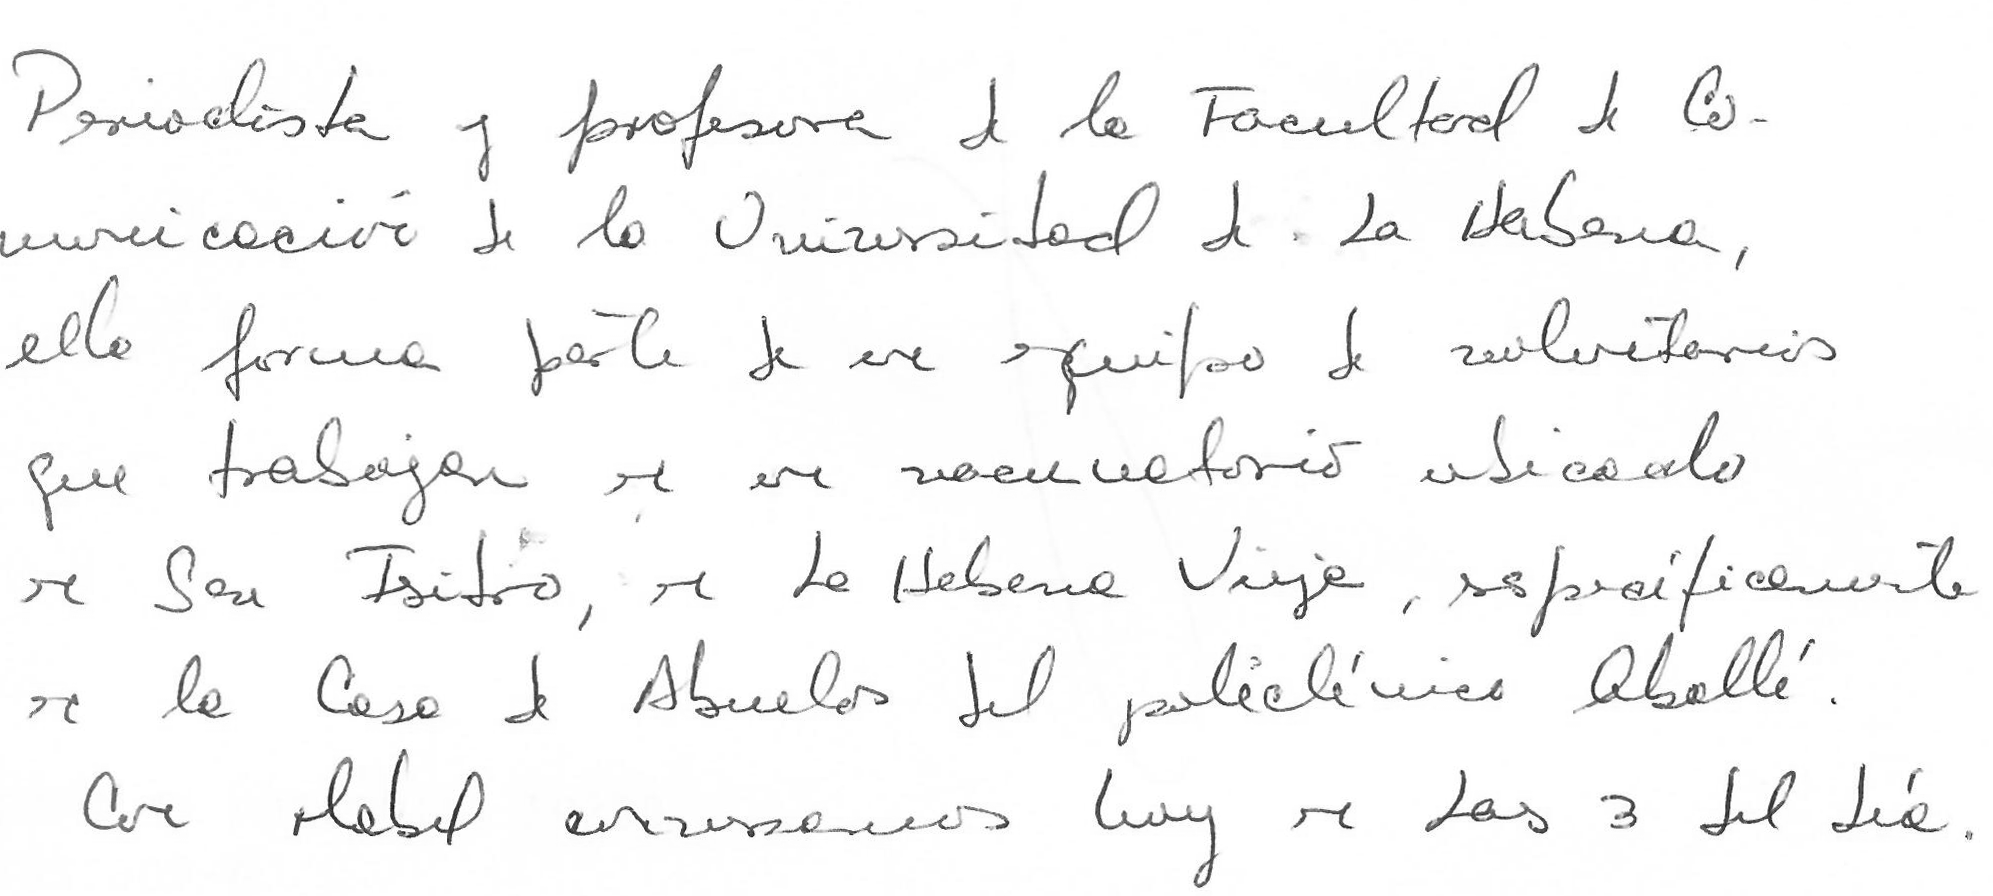 Periodista y profesora de la Facultad de Co-
municación de la Universidad de La Habana,
ella forma parte de un equipo de voluntarios
que trabajan en un vacunatorio ubicado
en San Isidro, en La Habana Vieja, específicamente
en la Casa de Abuelos del policlínico Aballí.
Con Mabel conversamos hoy en Las 3 del día.